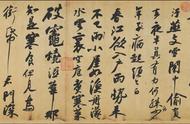 汙燕支雪闇中偷負
去夜半真有力何殊
少年病起頭已白
春江欲入戶雨勢來
不已雨小屋如漁舟濛濛
水雲裏空庖煮寒菜
破竈燒濕葦那
知是寒食但見烏
銜帋君門深